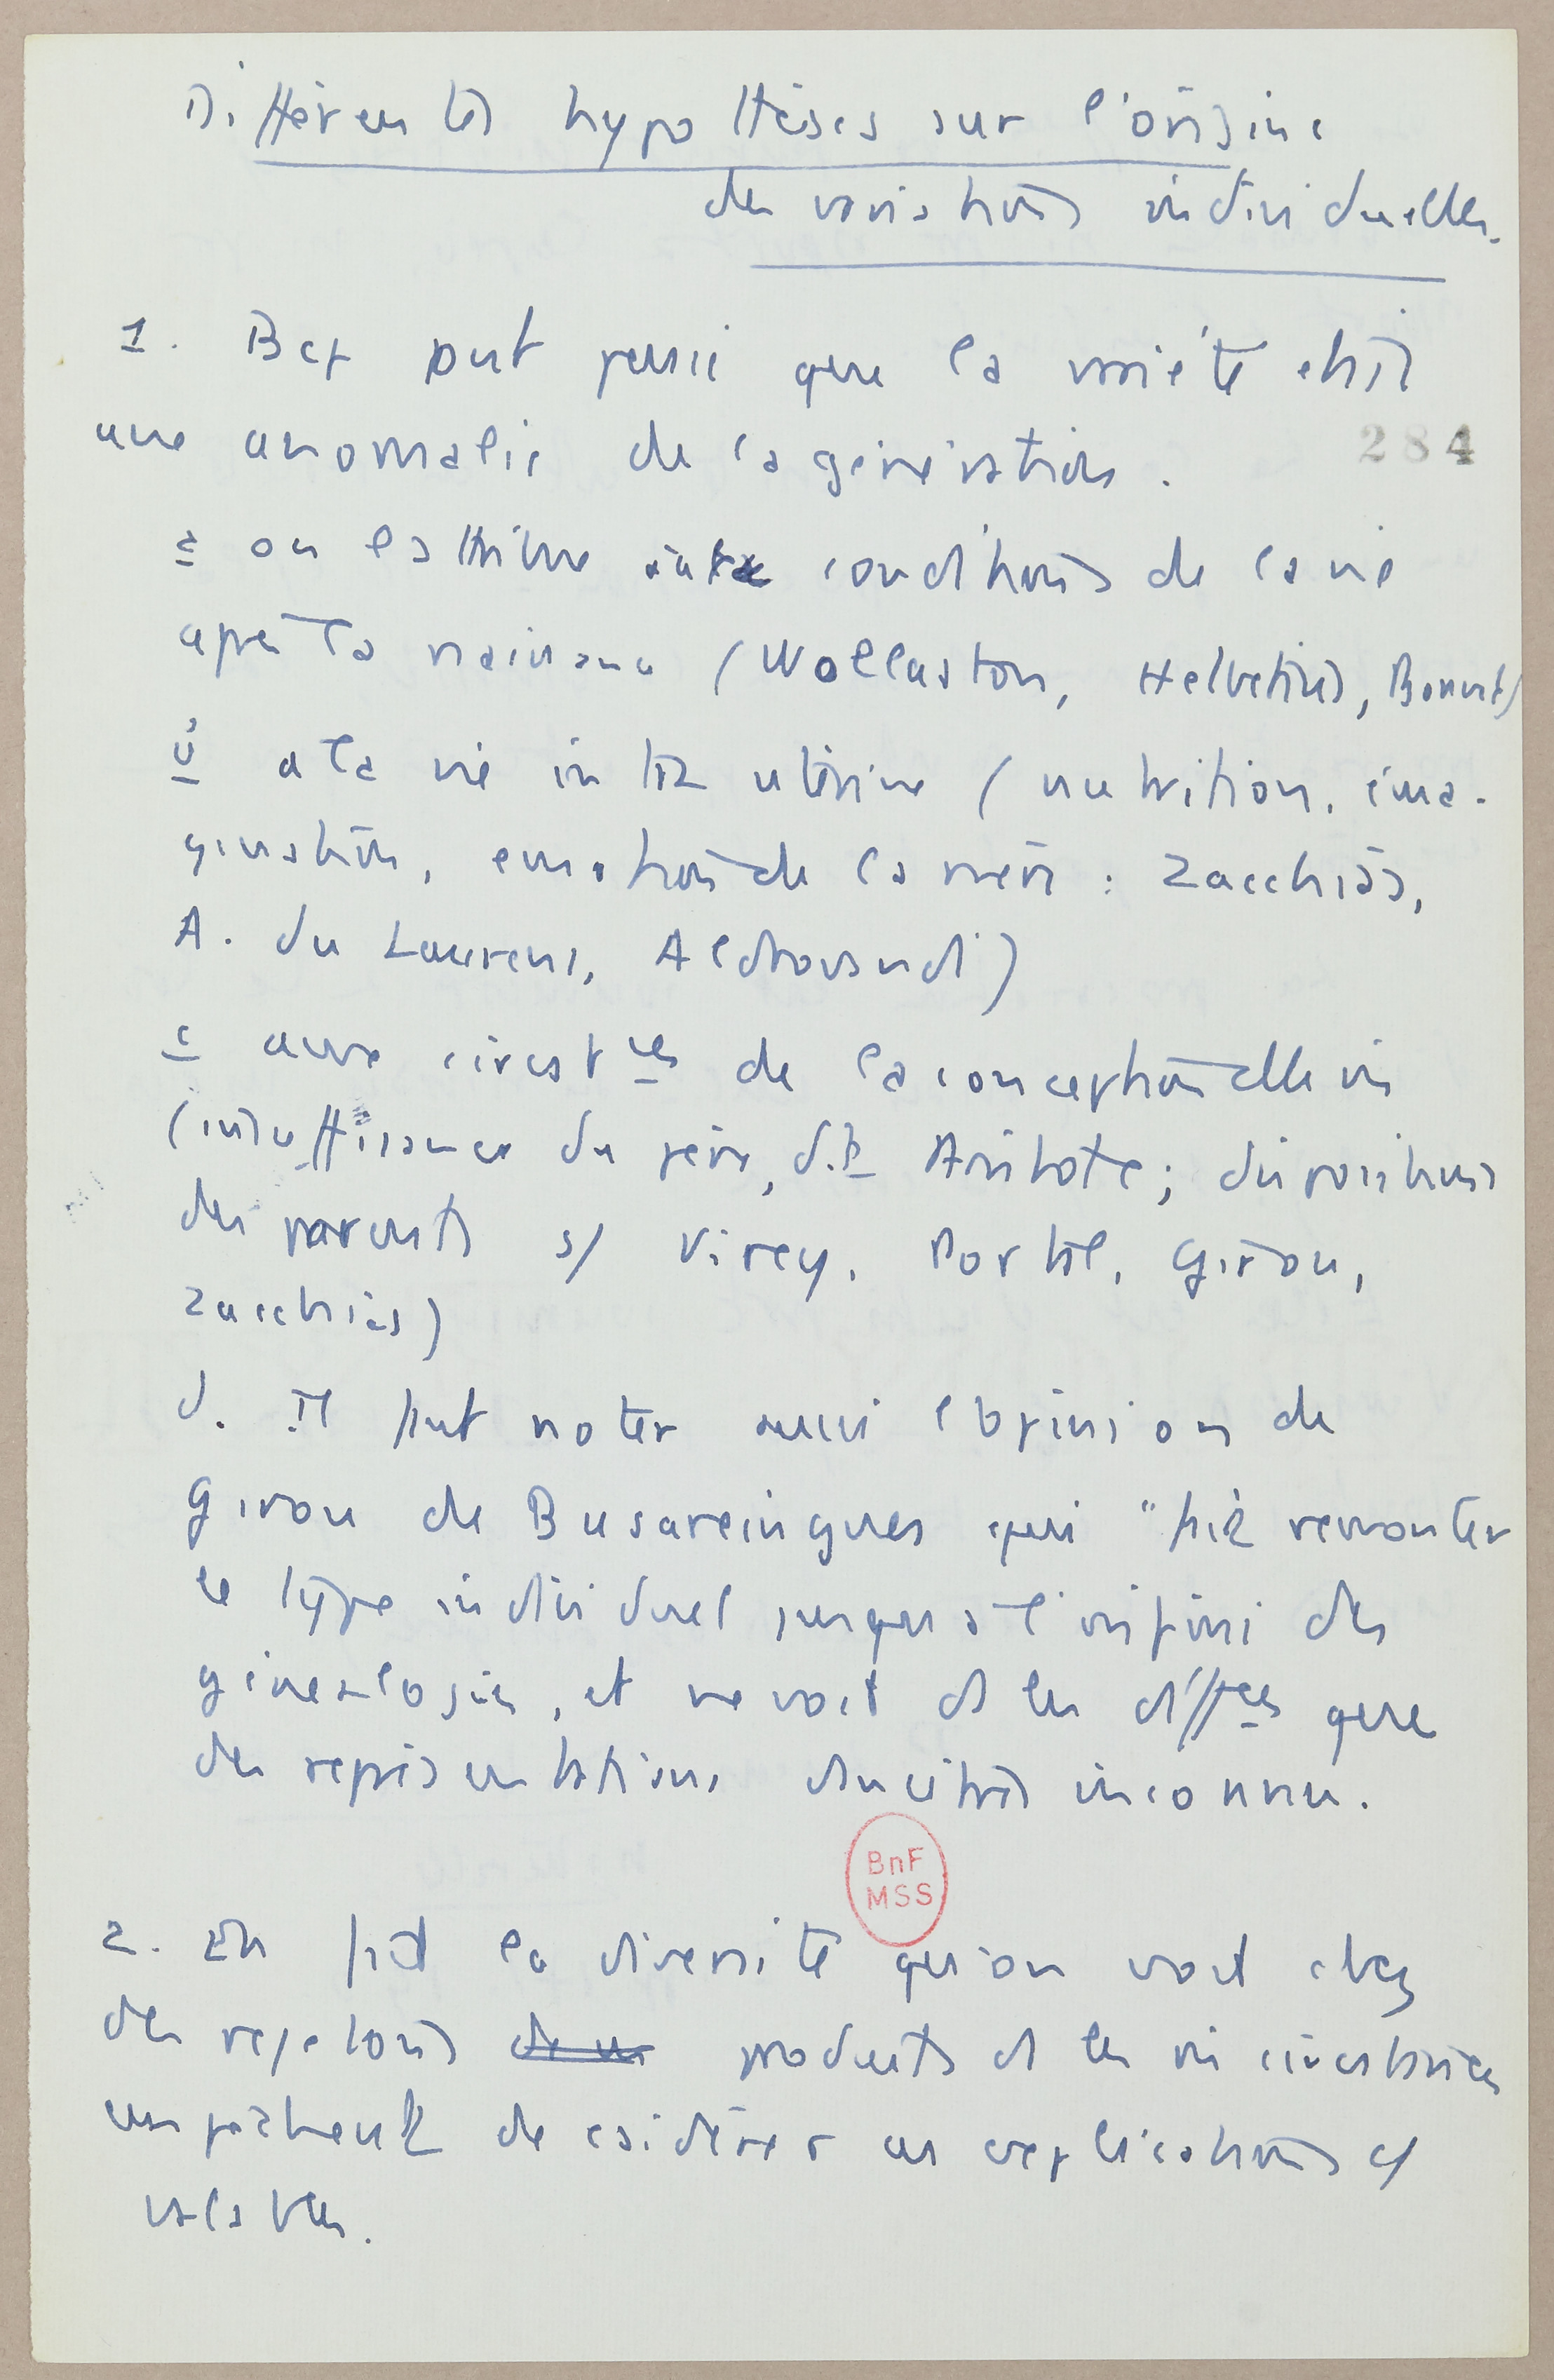 Différentes hypothèses sur l'origine
des variations individuelles.
1. Bcp ont pensé que la variété était
une anomalie de la génération.
284
a on l'attribue aux conditions de la vie
après la naissance (Wollaston, Helvetius, Bonnet)
b à la vie intra utérine (nutrition, ima-
gination, émotions de la mère : Zacchias,
A. du Laurens, Aldrovandi)
c aux circst ces de la conception elle m
(insuffisance du père, d. Aristote ; dispositions
des parents s/ Virey, Portal, Girou,
Zacchias)
d. Il faut noter aussi l'opinion de
Girou de Busareingues qui "fait remonter
le type individuel jusqu'à l'infini des
généalogies, et ne voit ds les diffces que
des représentations d'ancêtres inconnus.
BnF
MSS
2. En fait la diversité qu'on voit chez
des rejetons produits ds les m circstances
empêchent de csidérer ces explications c/
valables.